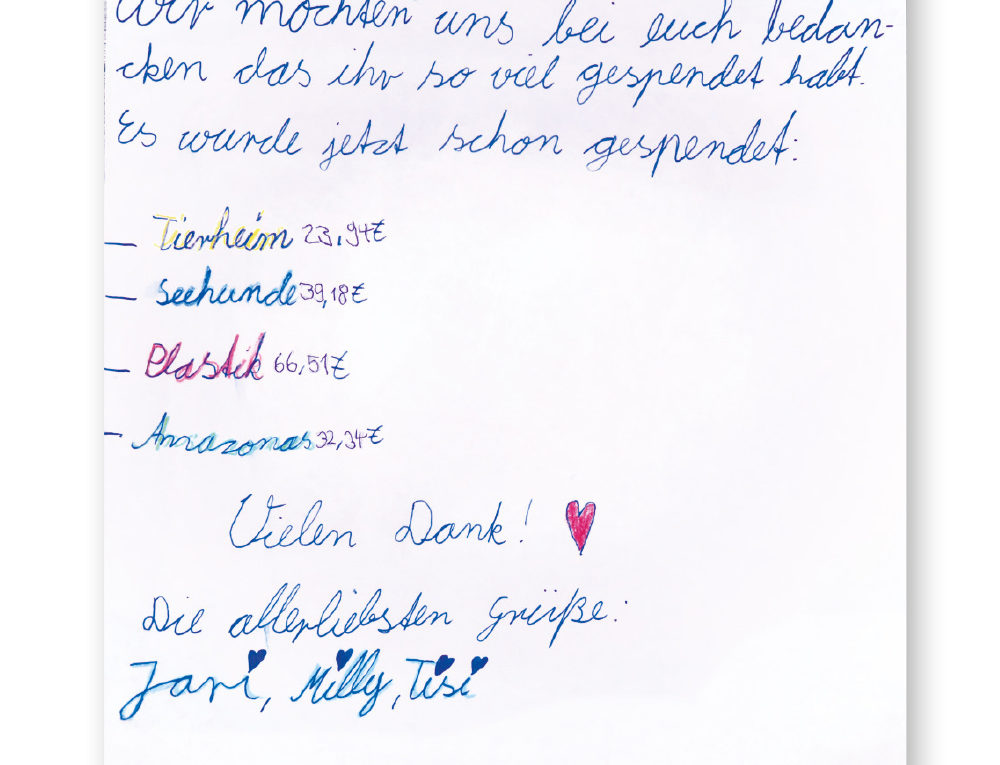 Wir möchten uns bei euch bedan-
cken das ihr so viel gespendet habt.
Es wurde jetzt schon gespendet:
– Tierheim 23,94€
– Seehunde 39,18€
– Plastik 66,51€
– Amazonas 32,34€
Vielen Dank!
Die allerliebsten Grüße:
Jari, Milly, Tisi